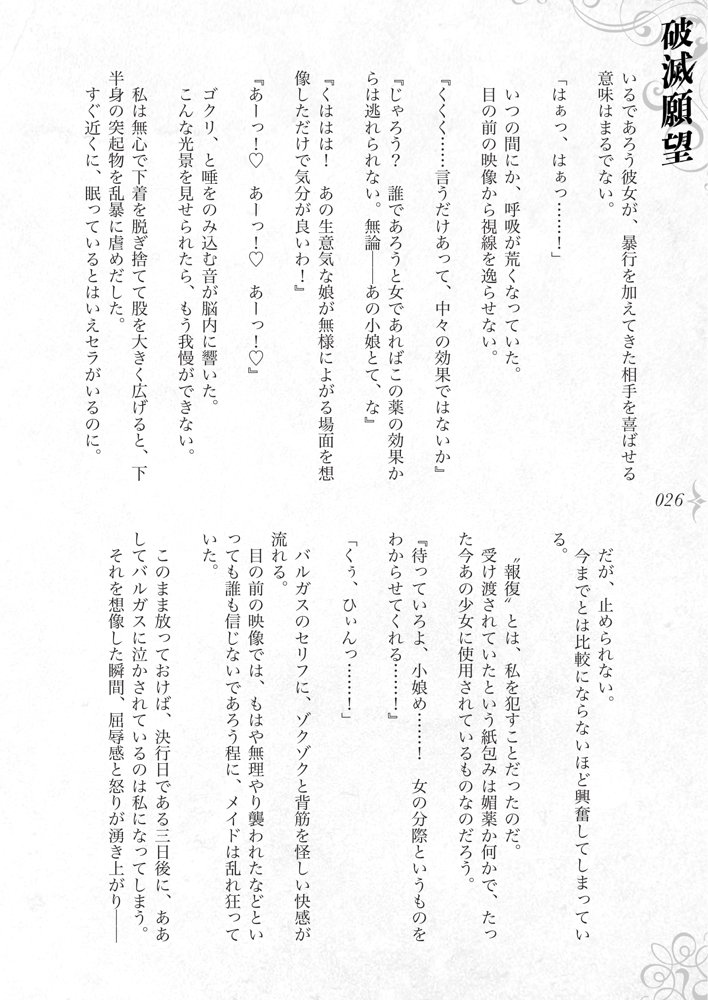 破滅願望
いるであろう彼女が、暴行を加えてきた相手を喜ばせる
意味はまるでない。
「はぁっ、はぁっ……！」
いつの間にか、呼吸が荒くなっていた。
目の前の映像から視線を逸らせない。
『くくく……言うだけあって、中々の効果ではないか』
『じゃろう？　誰であろうと女であればこの薬の効果か
らは逃れられない。無論――あの小娘とて、な』
『くははは！　あの生意気な娘が無様によがる場面を想
像しただけで気分が良いわ！』
『あーっ！♡　あーっ！♡　あーっ！♡』
ゴクリ、と唾をのみ込む音が脳内に響いた。
こんな光景を見せられたら、もう我慢ができない。
私は無心で下着を脱ぎ捨てて股を大きく広げると、下
半身の突起物を乱暴に虐めだした。
すぐ近くに、眠っているとはいえセラがいるのに。
026
だが、止められない。
今までとは比較にならないほど興奮してしまってい
る。
〝報復〟とは、私を犯すことだったのだ。
受け渡されていたという紙包みは媚薬か何かで、たっ
た今あの少女に使用されているものなのだろう。
『待っていろよ、小娘め……！　女の分際というものを
わからせてくれる……！』
「くぅ、ひぃんっ……！」
バルガスのセリフに、ゾクゾクと背筋を怪しい快感が
流れる。
目の前の映像では、もはや無理やり襲われたなどとい
っても誰も信じないであろう程に、メイドは乱れ狂って
いた。
このまま放っておけば、決行日である三日後に、ああ
してバルガスに泣かされているのは私になってしまう。
それを想像した瞬間、屈辱感と怒りが湧き上がり――